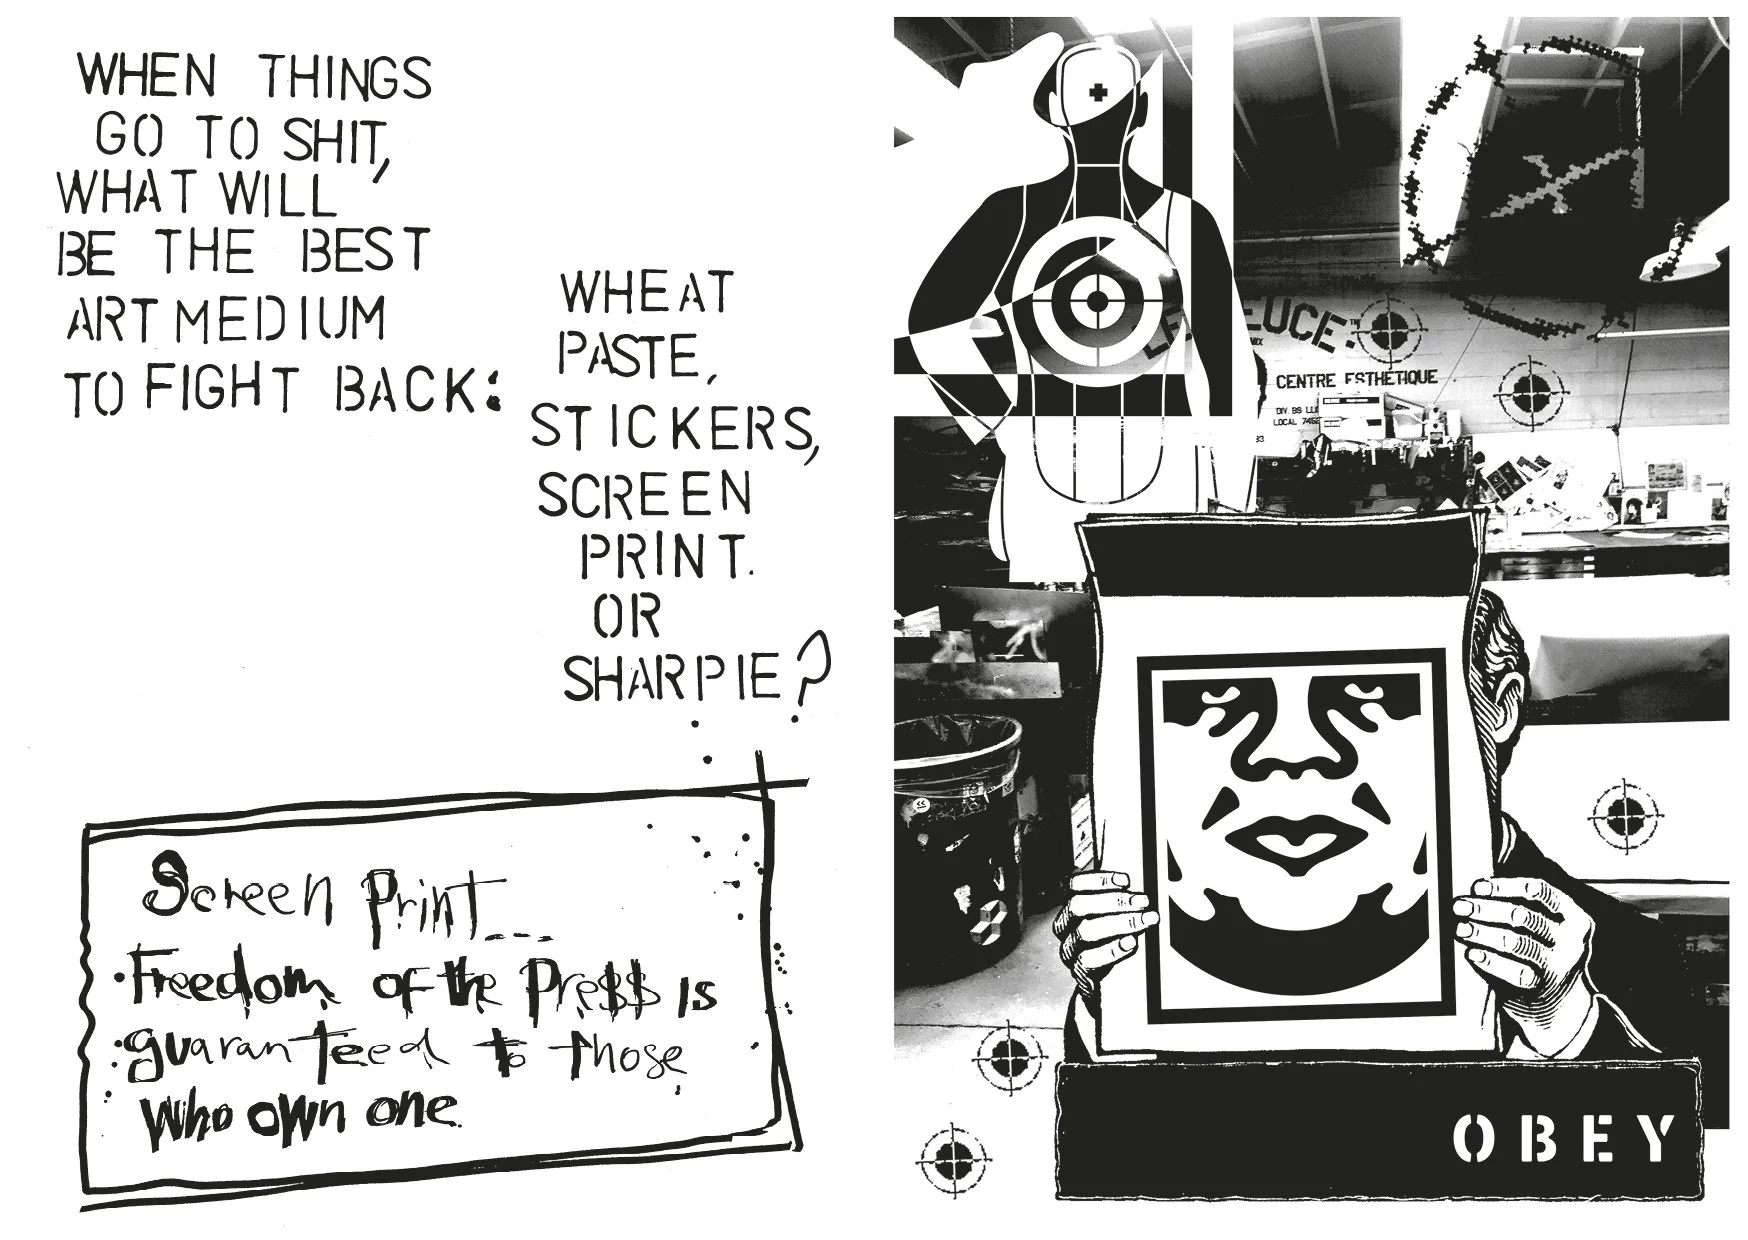 WHEN THINGS
GO TO SHIT,
WHAT WILL
BE THE BEST
ART MEDIUM
TO FIGHT BACK:
WHEAT
PASTE,
STICKERS,
SCREEN
PRINT.
OR
SHARPIE?
Screen Print...
Freedom of the Pre$$ is
guaranteed to those
who own one.
LUCE
CENTRE ESTHÉTIQUE
DIV. BS
LOCAL
OBEY